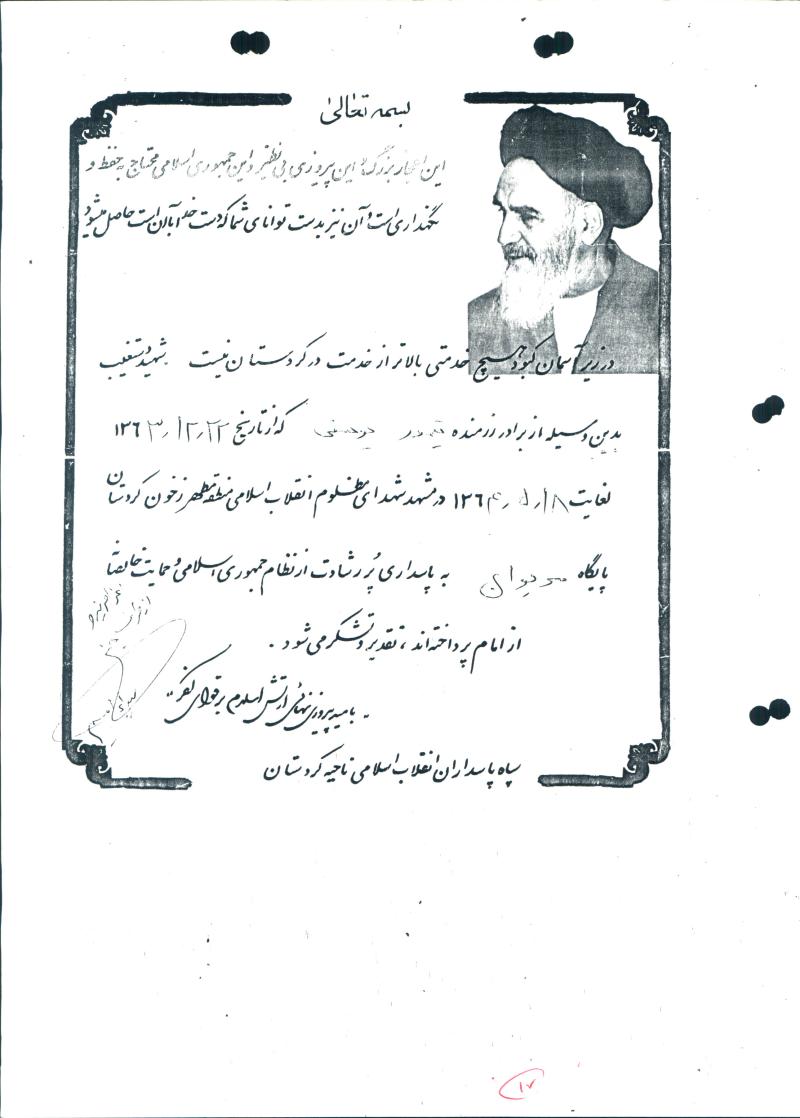 بسمه تعالی
این اعجاز بزرگ و این پیروزی بی نظیر و این جمهوری اسلامی محتاج به حفظ و
نگهداری است و آن نیز بدست توانای شما که دست خدا با آن است حاصل میشود
در زیر آسمان کبود هیچ خدمتی بالاتر از خدمت در کردستان نیست شهید دستغیب
بدین وسیله از برادر رزمنده که از تاریخ ۱۳۶۳/۱۲/۲۲
لغایت ۱۳۶۴/۵/۱۸ در مشهد شهدای مظلوم انقلاب اسلامی منطقه مطهر ز خون کردستان
پایگاه مریوان به پاسداری پُر رشادت از نظام جمهوری اسلامی و حمایت خالصانه
از امام پرداخته‌اند ، تقدیر و تشکر می شود .
" به امید پیروزی نهائی ارتش اسلام بر قوای کفر "
سپاه پاسداران انقلاب اسلامی ناحیه کردستان
۱۷